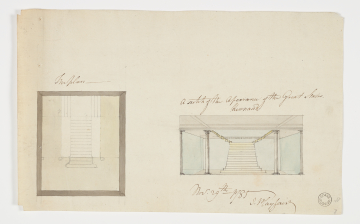 The plan
a sketch of the appearance of the Great Stair
Novr. 29th 1785
J. Playfair